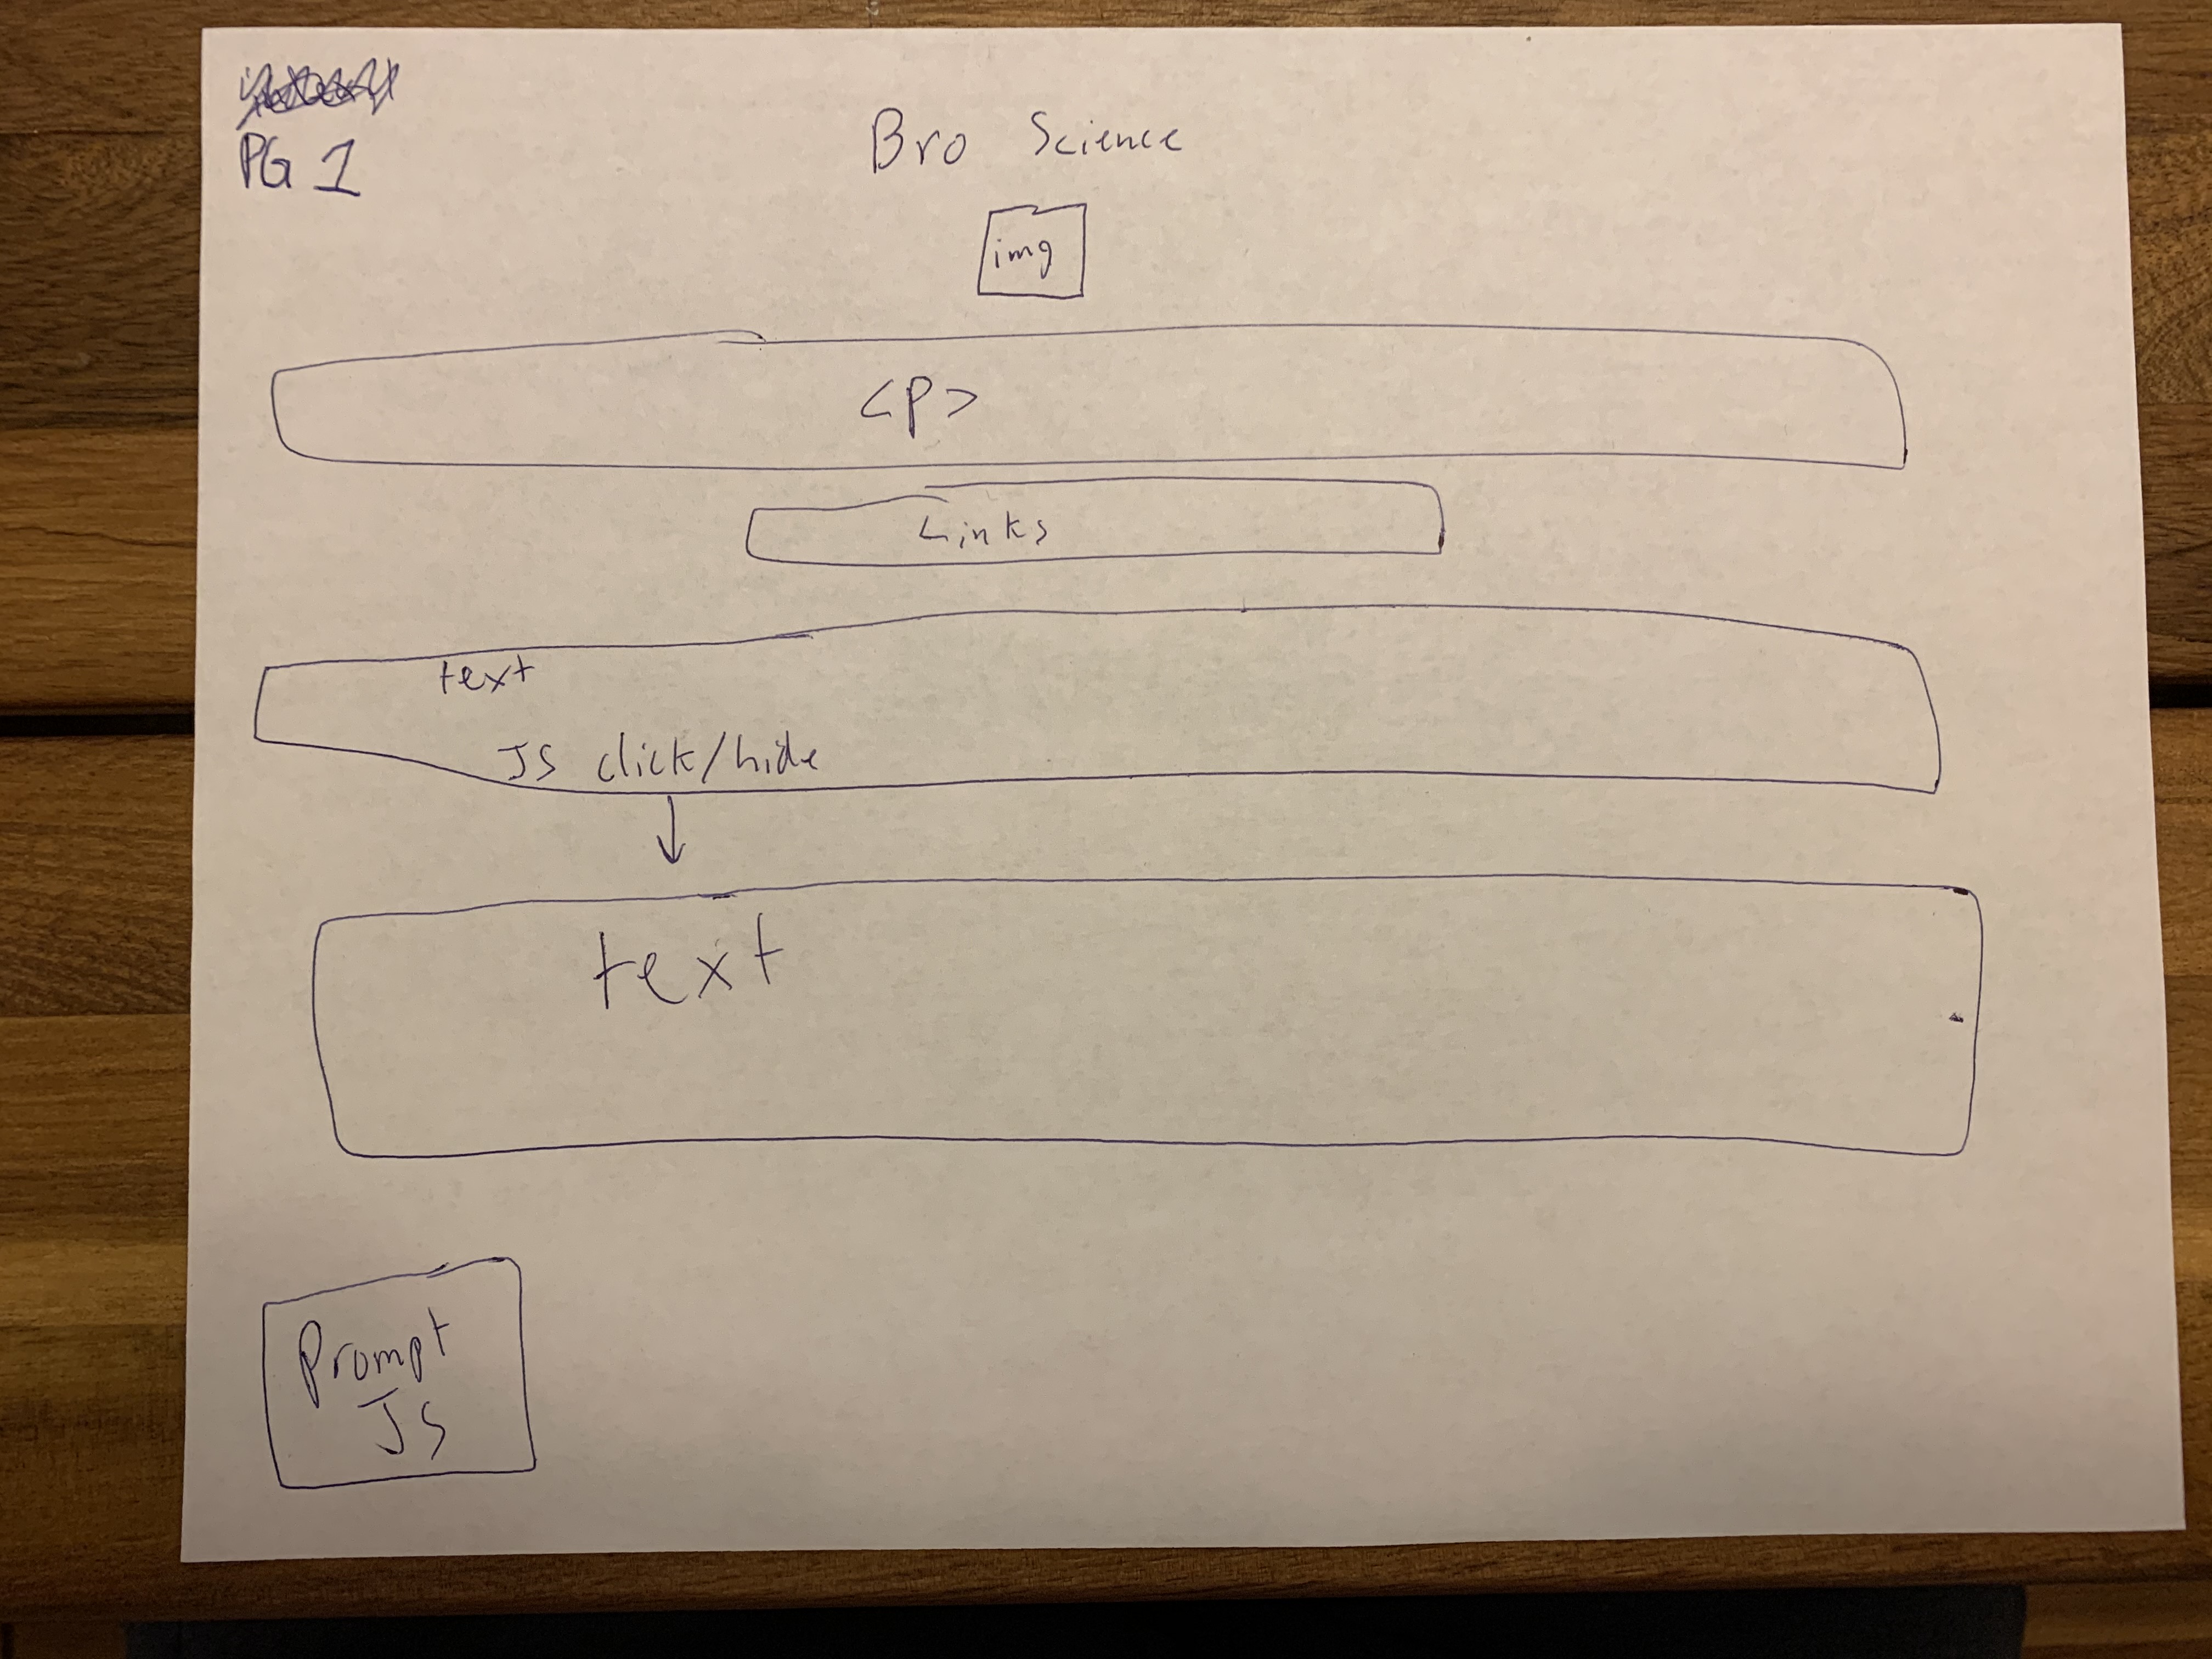 PG 1
Bro Science
img
<P>
Links
text
JS click/hide
text
Prompt
JS